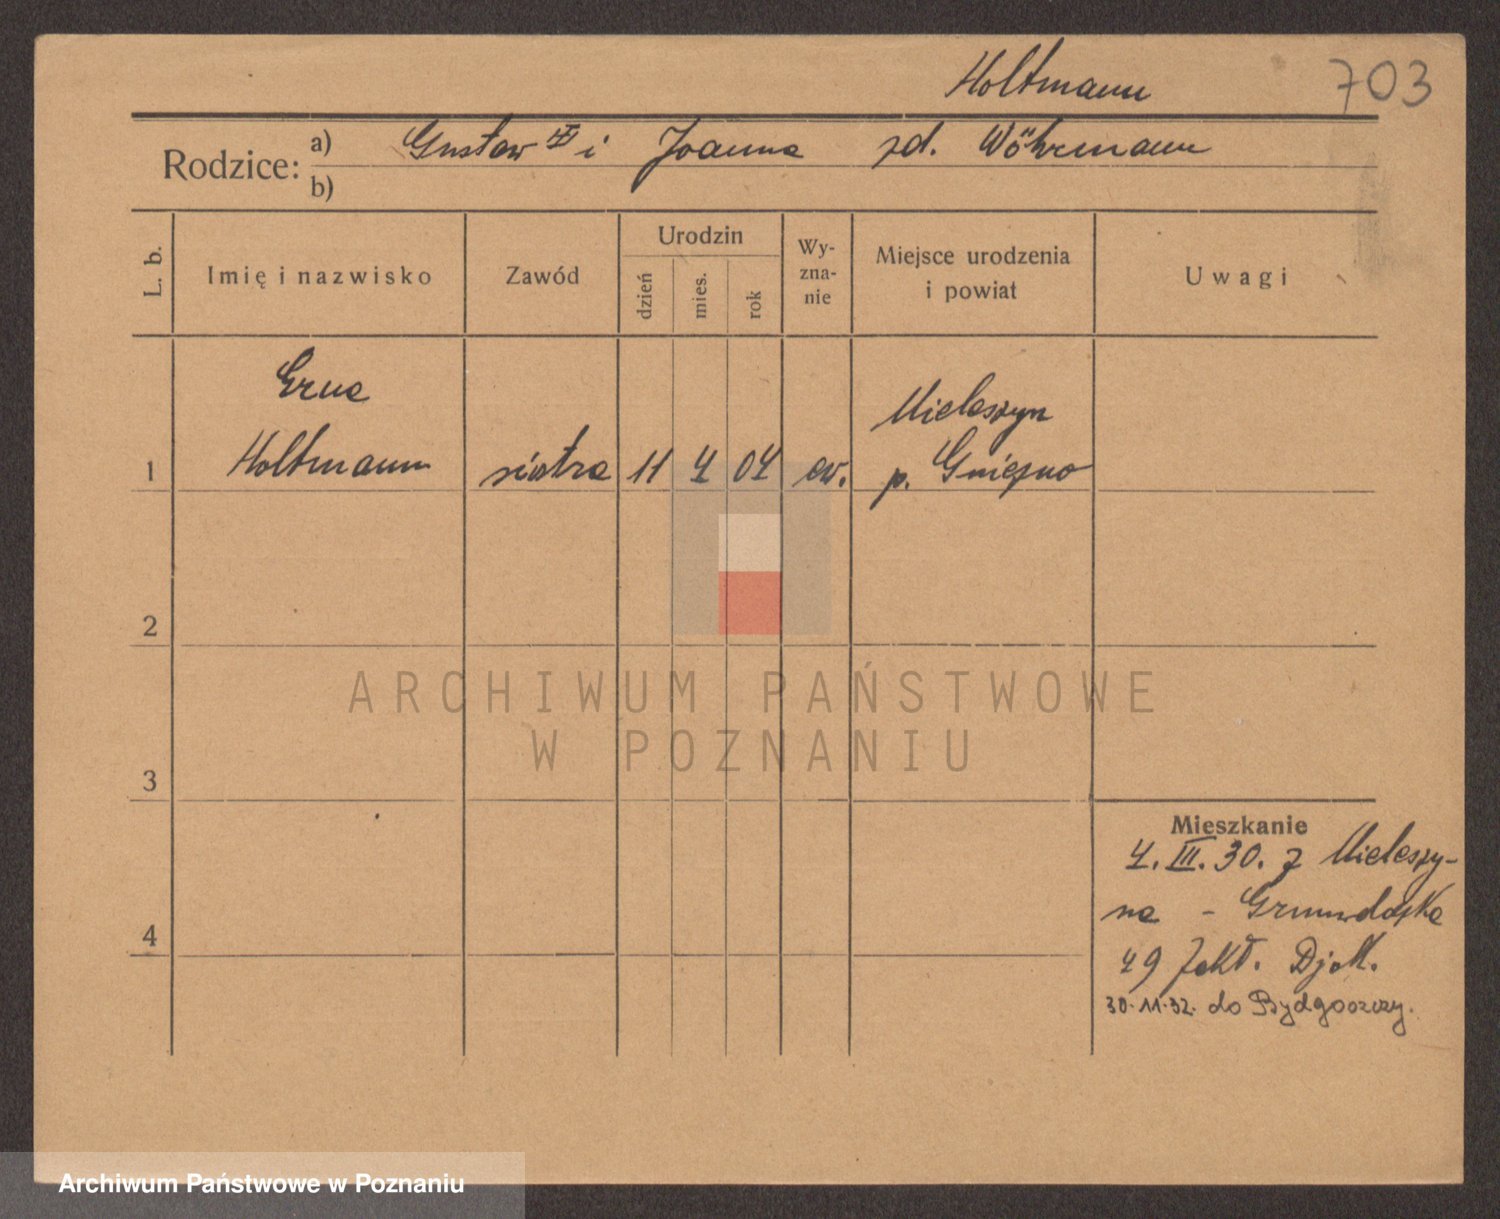 Holtmann 703
Rodzice: a) Gustaw i Joanna zd. Wöhrmann
b)
L. b. Imię i nazwisko Zawód Urodzin dzień mies. rok Wyznanie Miejsce urodzenia i powiat Uwagi
Erna
Mieleszyn
1 Holtmann siostra 11 4 04 ew. p. Gniezno
2
ARCHIWUM PAŃSTWOWE
W POZNANIU
3
Mieszkanie
4. III. 30. z Mieleszy-
na - Grunwaldzka
4
49 Zakł. Djak.
30.11.32. do Bydgoszczy.
Archiwum Państwowe w Poznaniu